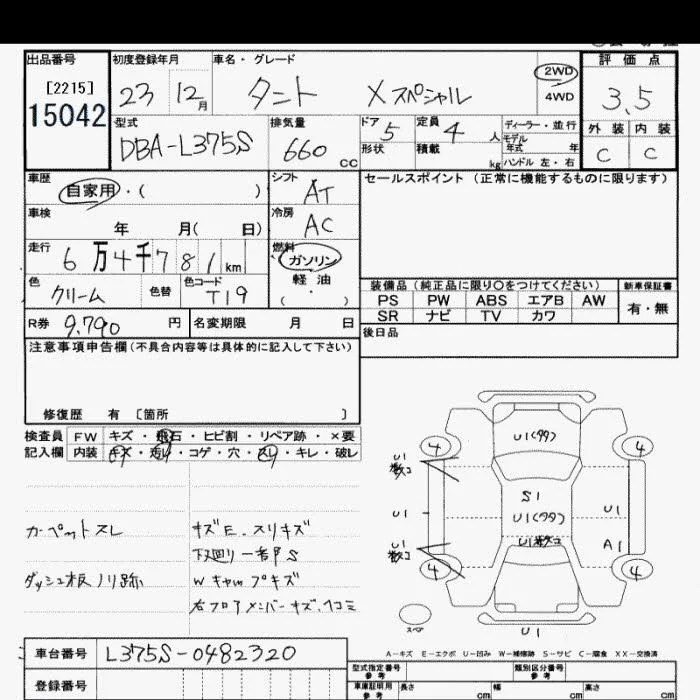 出品番号 初度登録年月 車名・グレード 評価点
[2215]
15042 23 12月 タント Xスペシャル 2WD 4WD 3.5
型式 排気量 ドア 定員 ディーラー・並行 外装 内装
DBA-L375S 660cc 5 4人 モデル年式 年 C C
形状 積載 kg ハンドル 左・右
車歴 シフト セールスポイント (正常に機能するものに限ります)
自家用・( ) AT
車検 冷房
年 月( 日) AC
走行 燃料
6万4千781km ガソリン
色 色替 色コード 軽油
クリーム T19 ( ・ )
装備品(純正品に限り○をつけてください) 新車保証書
PS PW ABS エアB AW 有・無
SR ナビ TV カワ
R券 9.790円 名変期限 月 日 後日品
注意事項申告欄(不具合内容等は具体的に記入して下さい)
修復歴 有 〔箇所 〕
検査員 FW キズ・飛石・ヒビ割・リペア跡・×要
記入欄 内装 キズ・汚レ・コゲ・穴・スレ・キレ・破レ
カーペットスレ キズE.スリキズ
下廻り一部S
ダッシュ板ノリ跡 Wキャップキズ
右フロアメンバーキズ.ヘコミ
U1(タタ)
4 4
U1 数コ
S1
U1 U1(タタ) U1
U1 数コ U1数コ A1
4 4
スペア
U1
A-キズ E-エクボ U-凹み W-補修跡 S-サビ C-腐食 XX-交換済
車台番号 L375S-0482320
登録番号
型式指定番号 参考 類別区分番号 参考
車庫証明用 参考 長さ cm 幅 cm 高さ cm